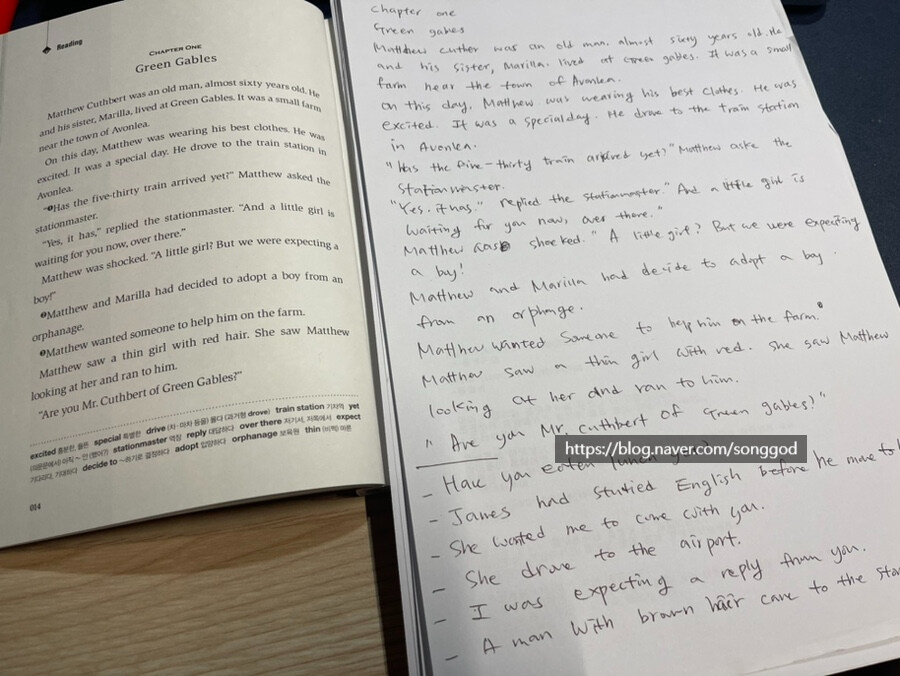 Reading
CHAPTER ONE
Green Gables
Matthew Cuthbert was an old man, almost sixty years old. He
and his sister, Marilla, lived at Green Gables. It was a small farm
near the town of Avonlea.
On this day, Matthew was wearing his best clothes. He was
excited. It was a special day. He drove to the train station in
Avonlea.
"❶Has the five-thirty train arrived yet?" Matthew asked the
stationmaster.
"Yes, it has," replied the stationmaster. "And a little girl is
waiting for you now, over there."
Matthew was shocked. "A little girl? But we were expecting a
boy!"
❷Matthew and Marilla had decided to adopt a boy from an
orphanage.
❸Matthew wanted someone to help him on the farm.
Matthew saw a thin girl with red hair. She saw Matthew
looking at her and ran to him.
"Are you Mr. Cuthbert of Green Gables?"
excited 흥분한, 들뜬 special 특별한 drive (차·마차 등을) 몰다 (과거형 drove) train station 기차역 yet
(의문문에서) 아직 ~ 안 (했어?) stationmaster 역장 reply 대답하다 over there 저기서, 저쪽에서 expect
기다리다, 기대하다 decide to ~하기로 결정하다 adopt 입양하다 orphanage 보육원 thin (비쩍) 마른
014
Chapter one
Green gables
Matthew cuther was an old man. almost sixty years old. He
and his sister, Marilla. lived at Green gables. It was a small
farm near the town of Avonlea.
On this day, Matthew was wearing his best clothes. He was
excited. It was a special day. He drove to the train station
in Avonlea.
"Has the five-thirty train arrived yet?" Matthew aske the
stationmaster.
"Yes. it has." replied the stationmaster." And a little girl is
waiting for you now, over there."
Matthew was shocked. "A little girl? But we were expecting
a boy!
Matthew and Marilla had decide to adopt a boy.
from an orphnge.
Matthew wanted someone to help him on the farm.
Matthew saw a thin girl with red. She saw Matthew
looking at her and ran to him.
" Are you Mr. Cuthbert of Green gables?"
https://blog.naver.com/songgod
- Have you eaten lunch yet?
- James had studied English before he move to
- She wanted me to come with you.
- She drove to the airport.
- I was expecting a reply from you.
- A man with brown hair came to the